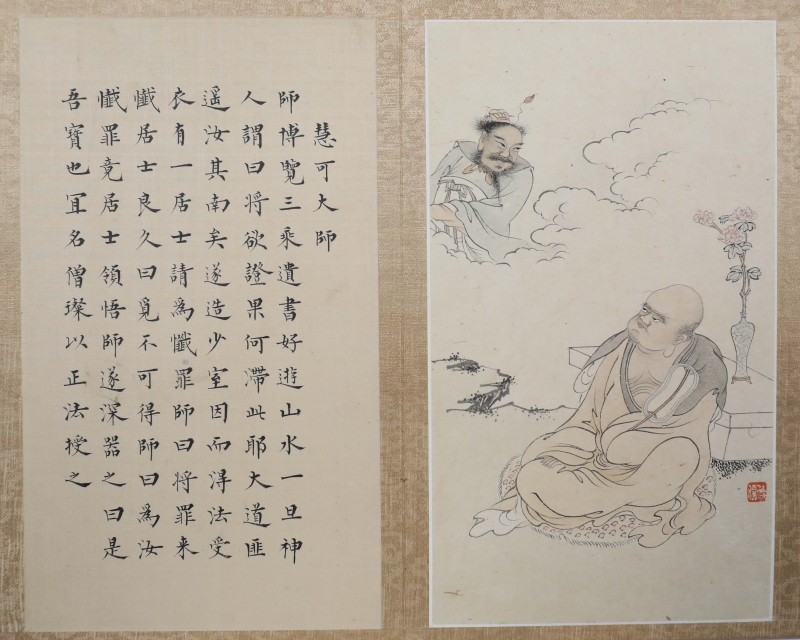 慧可大師
師博覽三乘遺書好逰山水一旦神
人謂曰将欲證果何滯此耶大道匪
遥汝其南矣遂造少室因而淂法受
衣有一居士請為懺罪師曰将罪来
懺居士良久曰覓不可得師曰為汝
懺罪竟居士領悟師遂深器之曰是
吾寳也冝名僧璨以正法授之